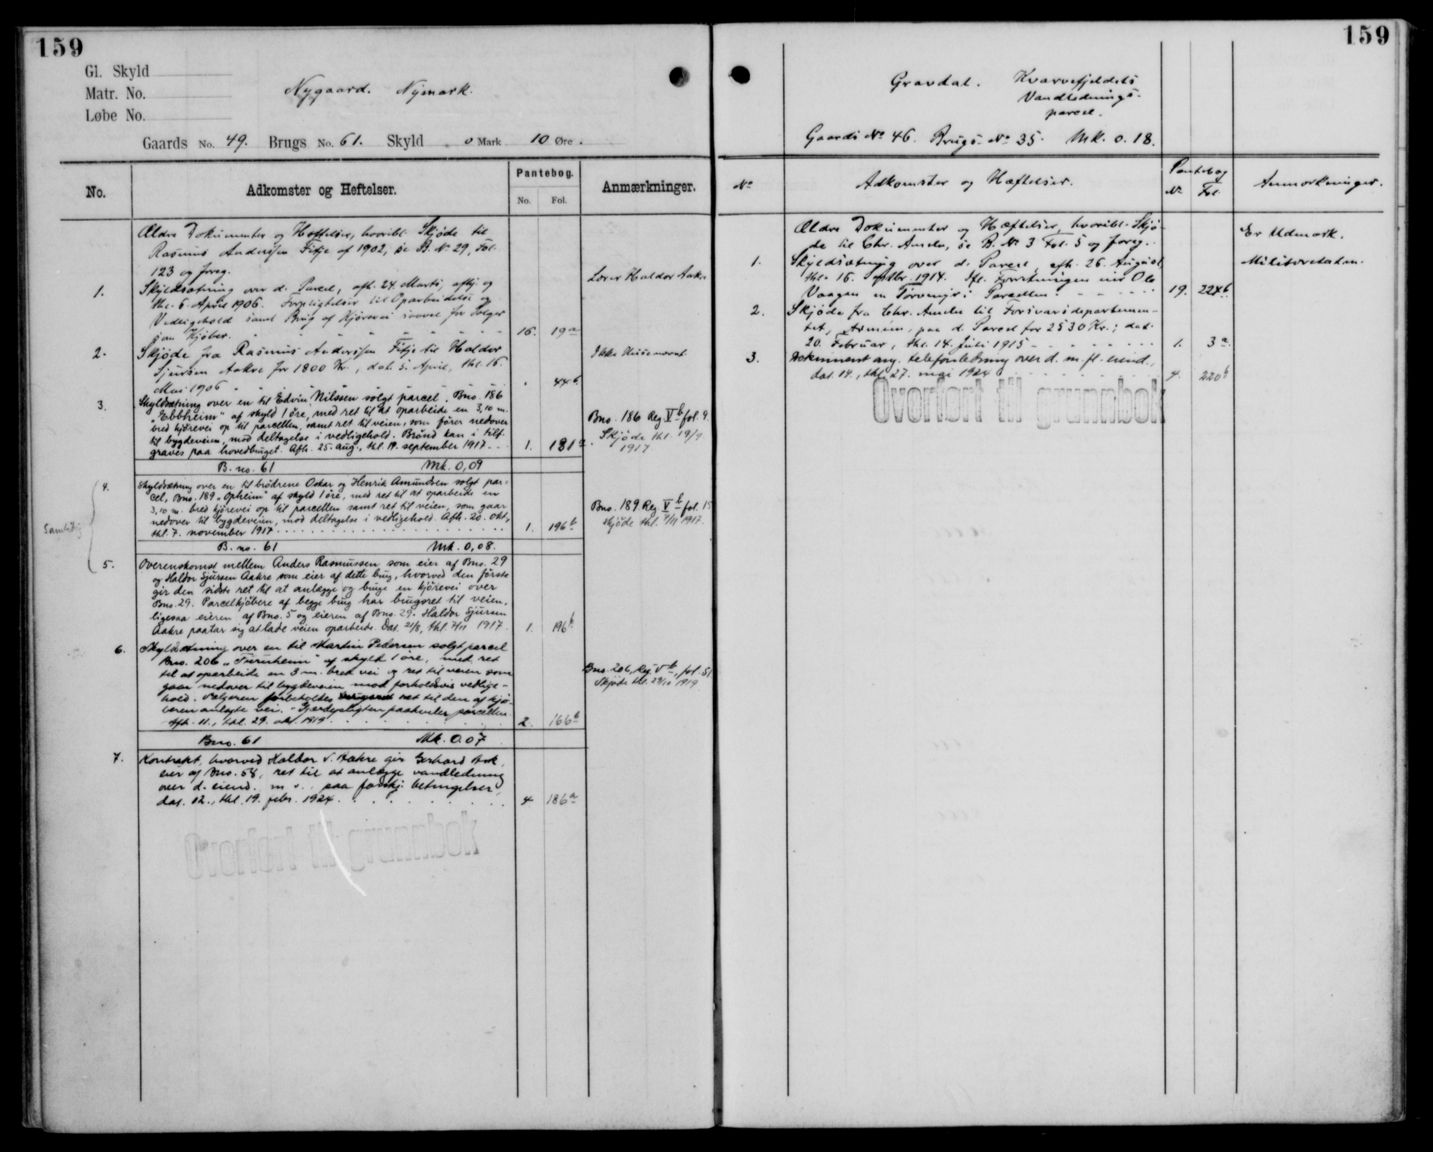 159
Gl. Skyld
Matr. No.
Løbe No.
Nygaard. Nymark.
Gaards No. 49. Brugs No. 61. Skyld 0 Mark 10 Øre.
No.
Adkomster og Heftelser.
Pantebog.
No. Fol.
Anmærkninger.
Ældre Dokumenter og Heftelser, hvoribl. Skjøde til
Rasmus Anderssen Fitje af 1902, se B. No 29, Fol.
123 og foreg.
1. Skyldsætning over d. Parcel, afh. 24 Marts, afhj og
thl. 6 April 1906. Forpligtelser til Oparbeidelse og
Vedligehold samt Brug af Kjørevei saavel for Sælger
som Kjøber. 16. 19a
Lever Haldor Aakre
2. Skjøde fra Rasmus Anderssen Fitje til Haldor
Sjursen Aakre for 1800 Kr., dat. 5. April, thl. 16.
Mai 1906 " 44b
Ikke Huusmand.
3. Skyldsætning over en til Edvin Nilssen solgt parcel, Bno. 186
"Ebbheim" af skyld 1 øre, med ret til at oparbeide en 3,10 m.
bred kjørevei op til parcellen, samt ret til veien, som fører nedover
til bygdeveien, mod deltagelse i vedligehold. Brønd kan i tilf.
graves paa hovedbruget. Afh. 25. aug., thl. 19. september 1917. 1. 181a
Bno. 186 Reg Vb fol. 9.
Skjøde thl. 19/9
1917
B. no. 61 Mk. 0,09
Samtidig
4. Skyldsætning over en til brødrene Oskar og Henrik Amundsen solgt par-
cel, Bno. 189 "Opheim" af skyld 1 øre, med ret til at oparbeide en
3,10 m. bred kjørevei op til parcellen samt ret til veien, som gaar
nedover til bygdeveien, mod deltagelse i vedligehold. Afh. 20. okt.,
thl. 7. november 1917. 1. 196b
Bno. 189 Reg Vb fol. 15
Skjøde thl. 7/11 1917.
B. no. 61 Mk. 0,08.
5. Overenskomst mellem Anders Rasmussen som eier af Bno. 29
og Haldor Sjursen Aakre som eier af dette brug, hvorved den første
gir den sidste ret til at anlægge og bruge en kjørevei over
Bno. 29. Parcelkjøbere af begge brug har brugsret til veien,
ligesaa eieren af Bno. 5 og eieren af Bno. 29. Haldor Sjursen
Aakre paatar sig at lade veien oparbeide. Dat. 21/8, thl. 7/11 1917. 1. 196b
6. Skyldsætning over en til Martin Pedersen solgt parcel
Bno. 206 af skyld 1 øre, med ret
til at oparbeide en 3 m. bred vei og ret til veien som
gaar nedover til bygdeveien mod forholdsvis vedlige-
hold. Sælgeren forbeholdes ret til den af kjø-
beren anlagte vei. Gjærdepligten paahviler parcellen.
Afh. 11., thl. 29. okt. 1919. 2. 166b
Bno. 206, Reg Vb, fol. 51
Skjøde thl. 29/10 1919
Bno. 61 Mk. 0.07
7. Kontrakt, hvorved Haldor S. Aakre gir Gerhard Ask,
eier af Bno. 58, ret til at anlægge vandledning
over d. eiend. m. v. paa forskj. betingelser,
dat. 12., thl. 19. febr. 1924. 4 186a
Overført til grunnbok
159
Gravdal. Kvarvefjeldets
Vandlednings-
parcel.
Gaards No 46. Brugs No 35. Mk. 0.18.
No
Adkomster og Hæftelser.
Pantebog
No. Fol.
Anmærkninger.
Ældre Dokumenter og Hæftelser, hvoribl. Skjø-
de til Chr. Anda, se B. No 3 Fol. 5 og foreg.
Er Udmark.
1. Skyldsætning over d. Parcel, afh. 26. August,
thl. 16. Septbr. 1914. Ifl. Forretningen eier Ole
Vaagen en Tørvemyr i Parcellen. 19. 224b
Militæretaten.
2. Skjøde fra Chr. Anda til Forsvarsdepartemen-
tet, Armeen, paa d. Parcel for 2530 Kr.; dat.
20. Februar, thl. 14. Juli 1915 1. 3a
3. Dokument ang. telefonledning over d. m. fl. eiend.,
dat. 14., thl. 27. mai 1924 4. 220b
Overført til grunnbok